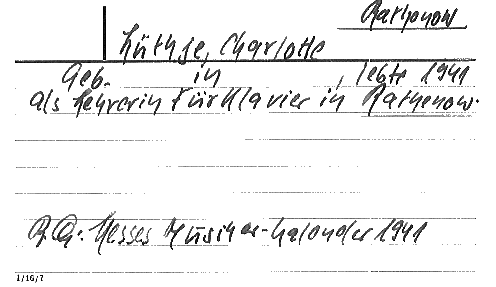 Rathenow
Lüthje, Charlotte
Geb. in , lebte 1941
als Lehrerin für Klavier in Rathenow.
Hesses Musiker-Kalender 1941
1/16/7